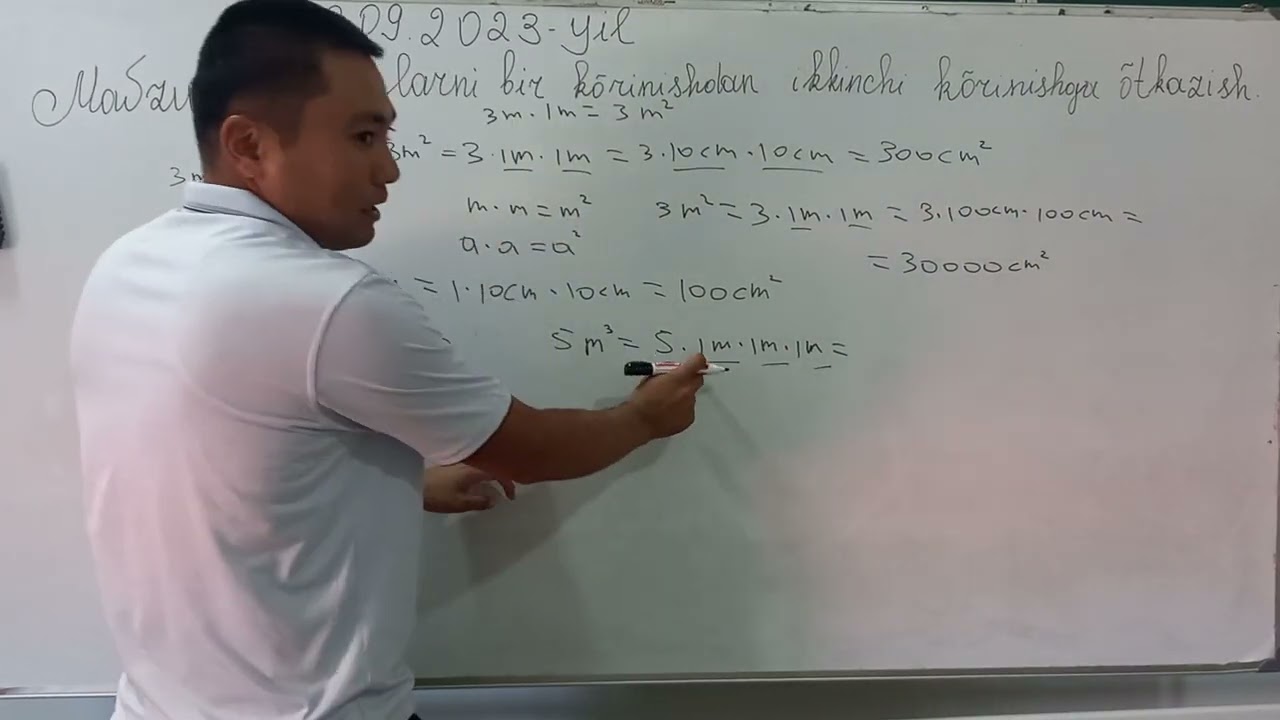 09.2023-yil
larni bir kõrinishdan ikkinchi kõrinishga õtkazish.
3m·1m=3m²
3m²=3·1m·1m=3·10cm·10cm=300cm²
3m
m·m=m² 3m²=3·1m·1m=3·100cm·100cm=
a·a=a² =30000cm²
=1·10cm·10cm=100cm²
5m³=5·1m·1m·1m=